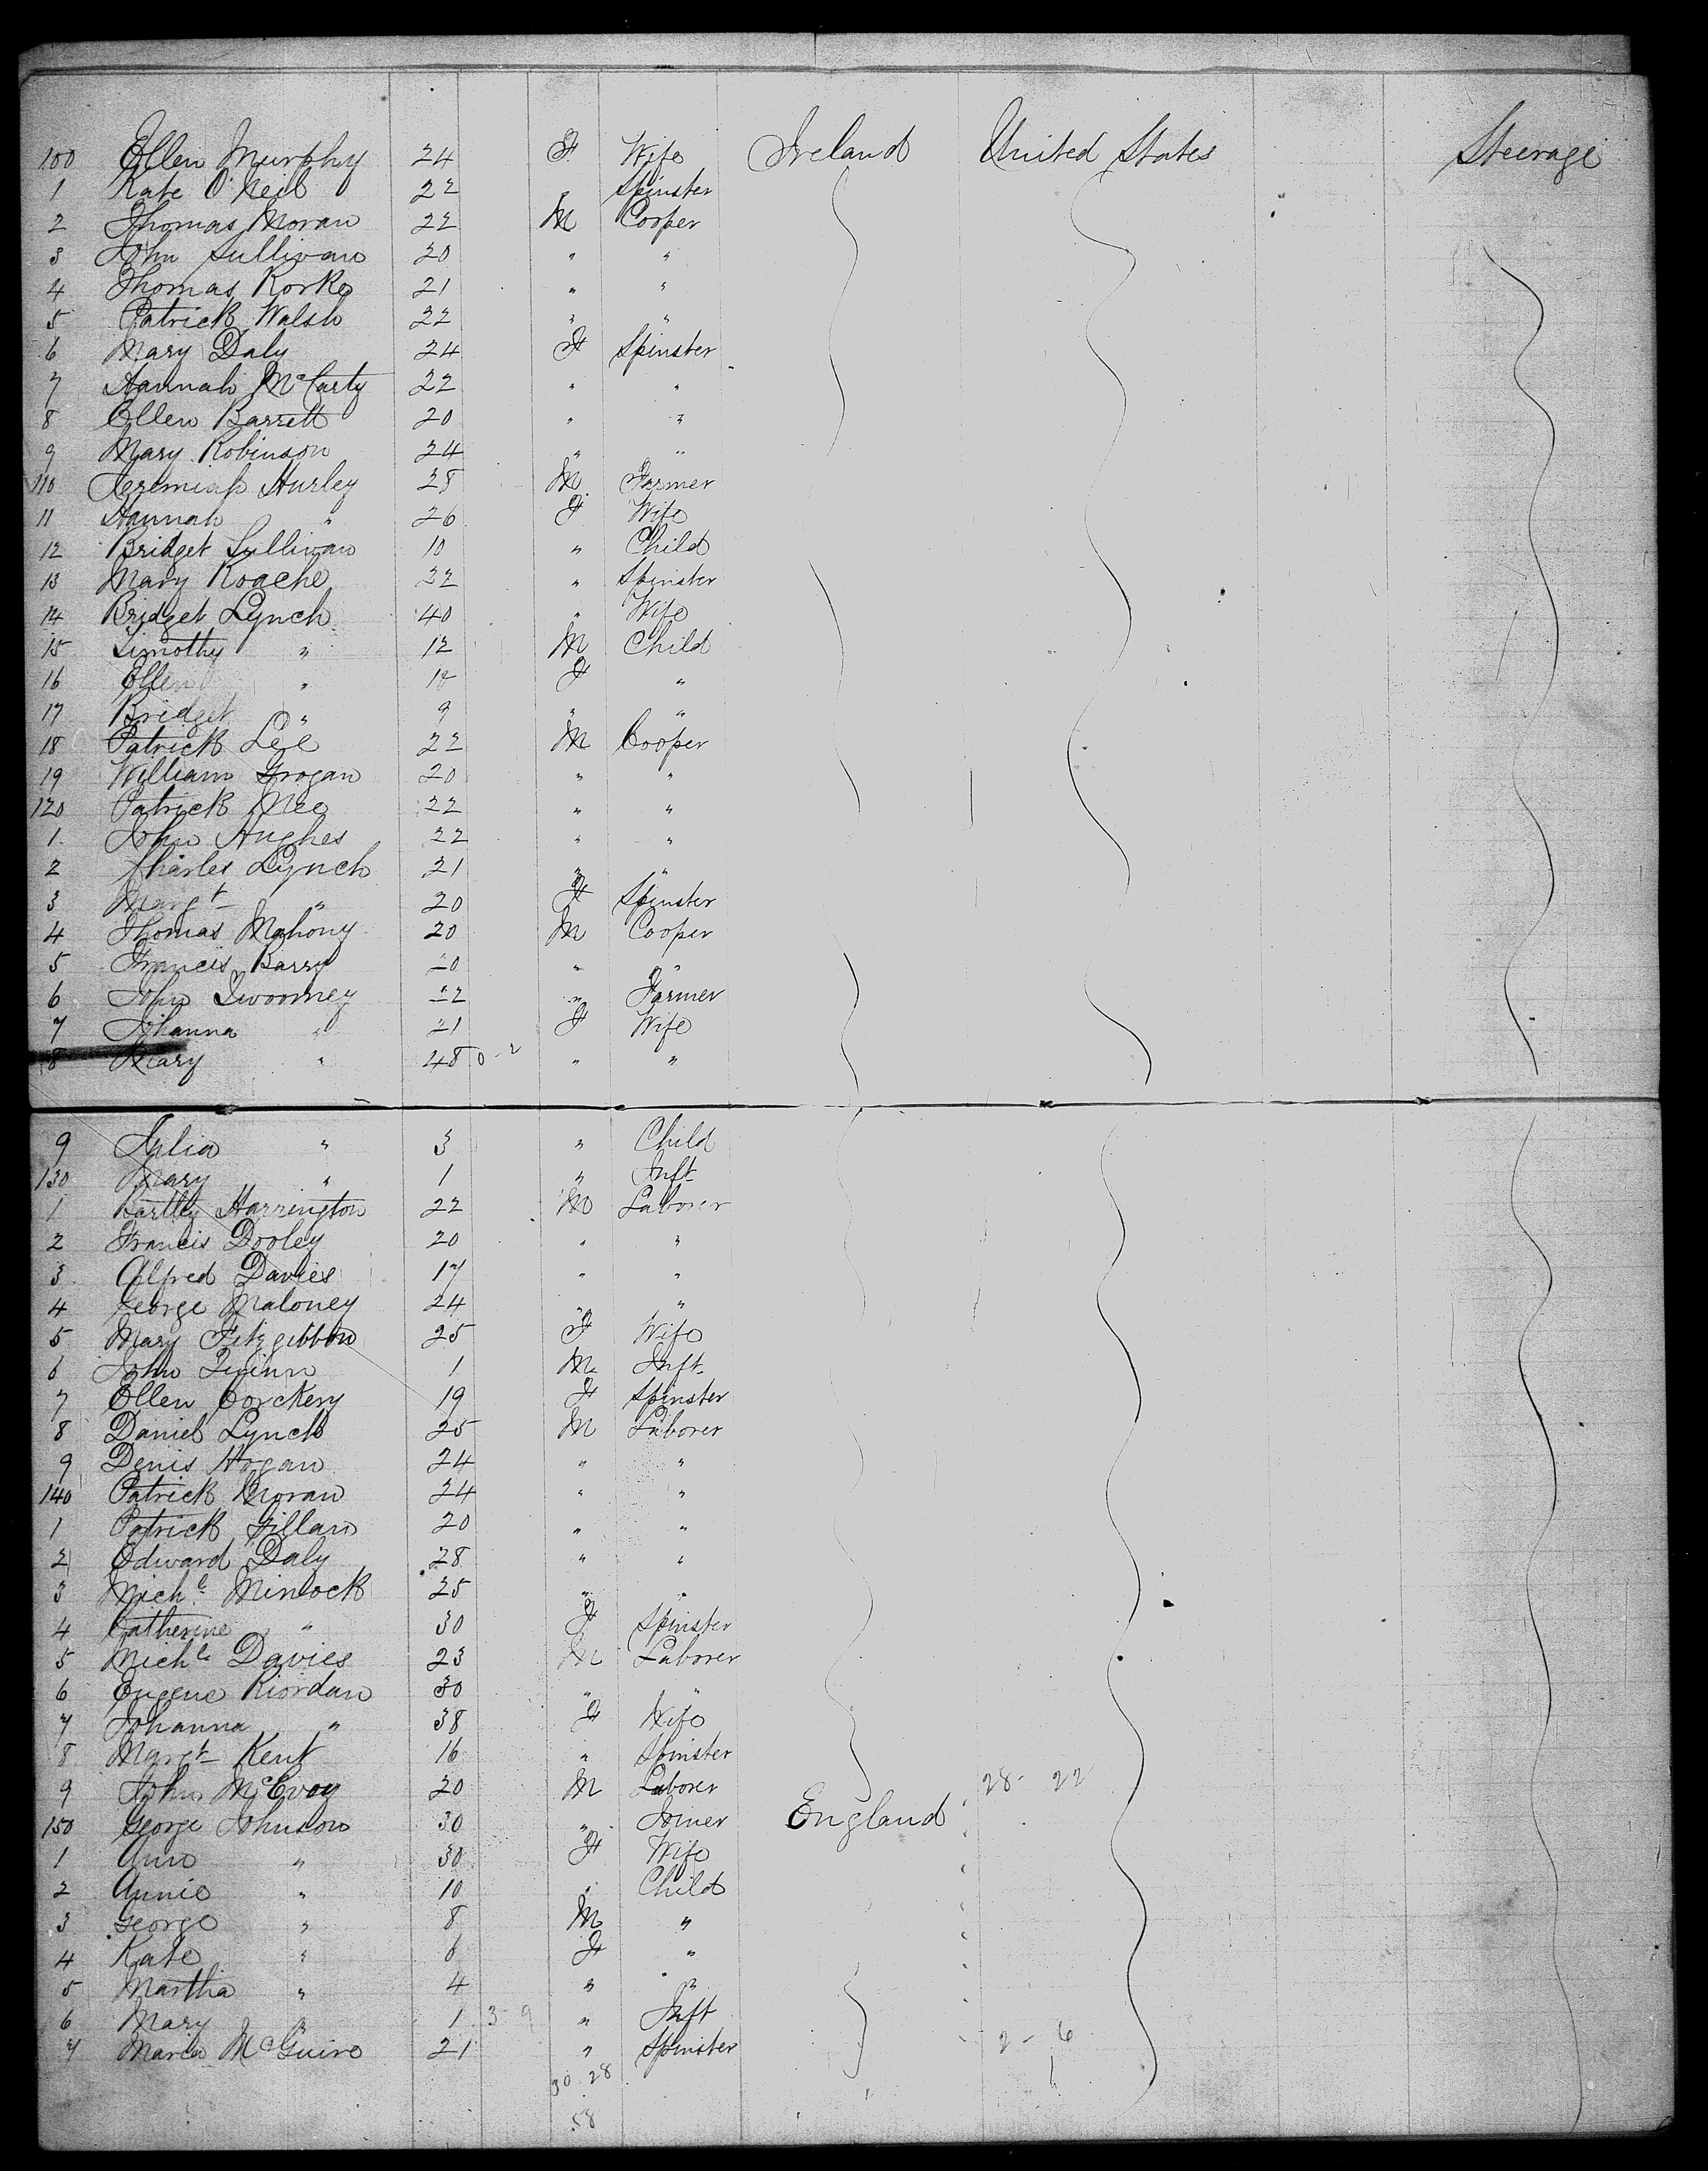 100 Ellen Murphy 24 F Wife Ireland United States Steerage
1 Kate O'Neil 22 Spinster
2 Thomas Moran 22 M Cooper
3 John Sullivan 20 " "
4 Thomas Rorke 21 " "
5 Patrick Walsh 22 " "
6 Mary Daly 24 F Spinster
7 Hannah McCarty 22 " "
8 Ellen Barrett 20 " "
9 Mary Robinson 24 " "
110 Jeremiah Hurley 28 M Farmer
11 Hannah " 26 F Wife
12 Bridget Sullivan 10 " Child
13 Mary Roache 22 " Spinster
14 Bridget Lynch 40 " Wife
15 Timothy " 12 M Child
16 Ellen " F "
17 Bridget " 9 " "
18 Patrick Lee 22 M Cooper
19 William Grogan 20 " "
120 Patrick Nee 22 " "
1 John Hughes 22 " "
2 Charles Lynch 21 " "
3 Margt " 20 F Spinster
4 Thomas Mahony 20 M Cooper
5 Francis Barry 20 " "
6 John Twoomey 22 " Farmer
7 Johanna " 21 F Wife
8 Mary " 48 0-2 " "
9 Julia " 3 " Child
130 Mary " 1 " Inft
1 Bartley Harrington 22 M Laborer
2 Francis Dooley 20 " "
3 Alfred Davies 17 " "
4 George Maloney 24 " "
5 Mary Fitzgibbon 25 F Wife
6 John Quinn 1 M Inft
7 Ellen Corckery 19 F Spinster
8 Daniel Lynch 25 M Laborer
9 Denis Hogan 24 " "
140 Patrick Moran 24 " "
1 Patrick Gillan 20 " "
2 Edward Daly 28 " "
3 Michl Minlock 25 " "
4 Catherine " 30 F Spinster
5 Michl Davies 23 M Laborer
6 Eugene Riordan 30 " "
7 Johanna " 38 F Wife
8 Margt Kent 16 " Spinster
9 John McEvoy 20 M Laborer 28- 22
150 George Johnson 30 " Joiner England
1 Ann " 30 F Wife
2 Annie " 10 " Child
3 George " 8 M "
4 Kate " 6 F "
5 Martha " 4 " "
6 Mary " 1 3-9 " Inft
7 Maria McGuire 21 " Spinster 2-6
30 28 1
58